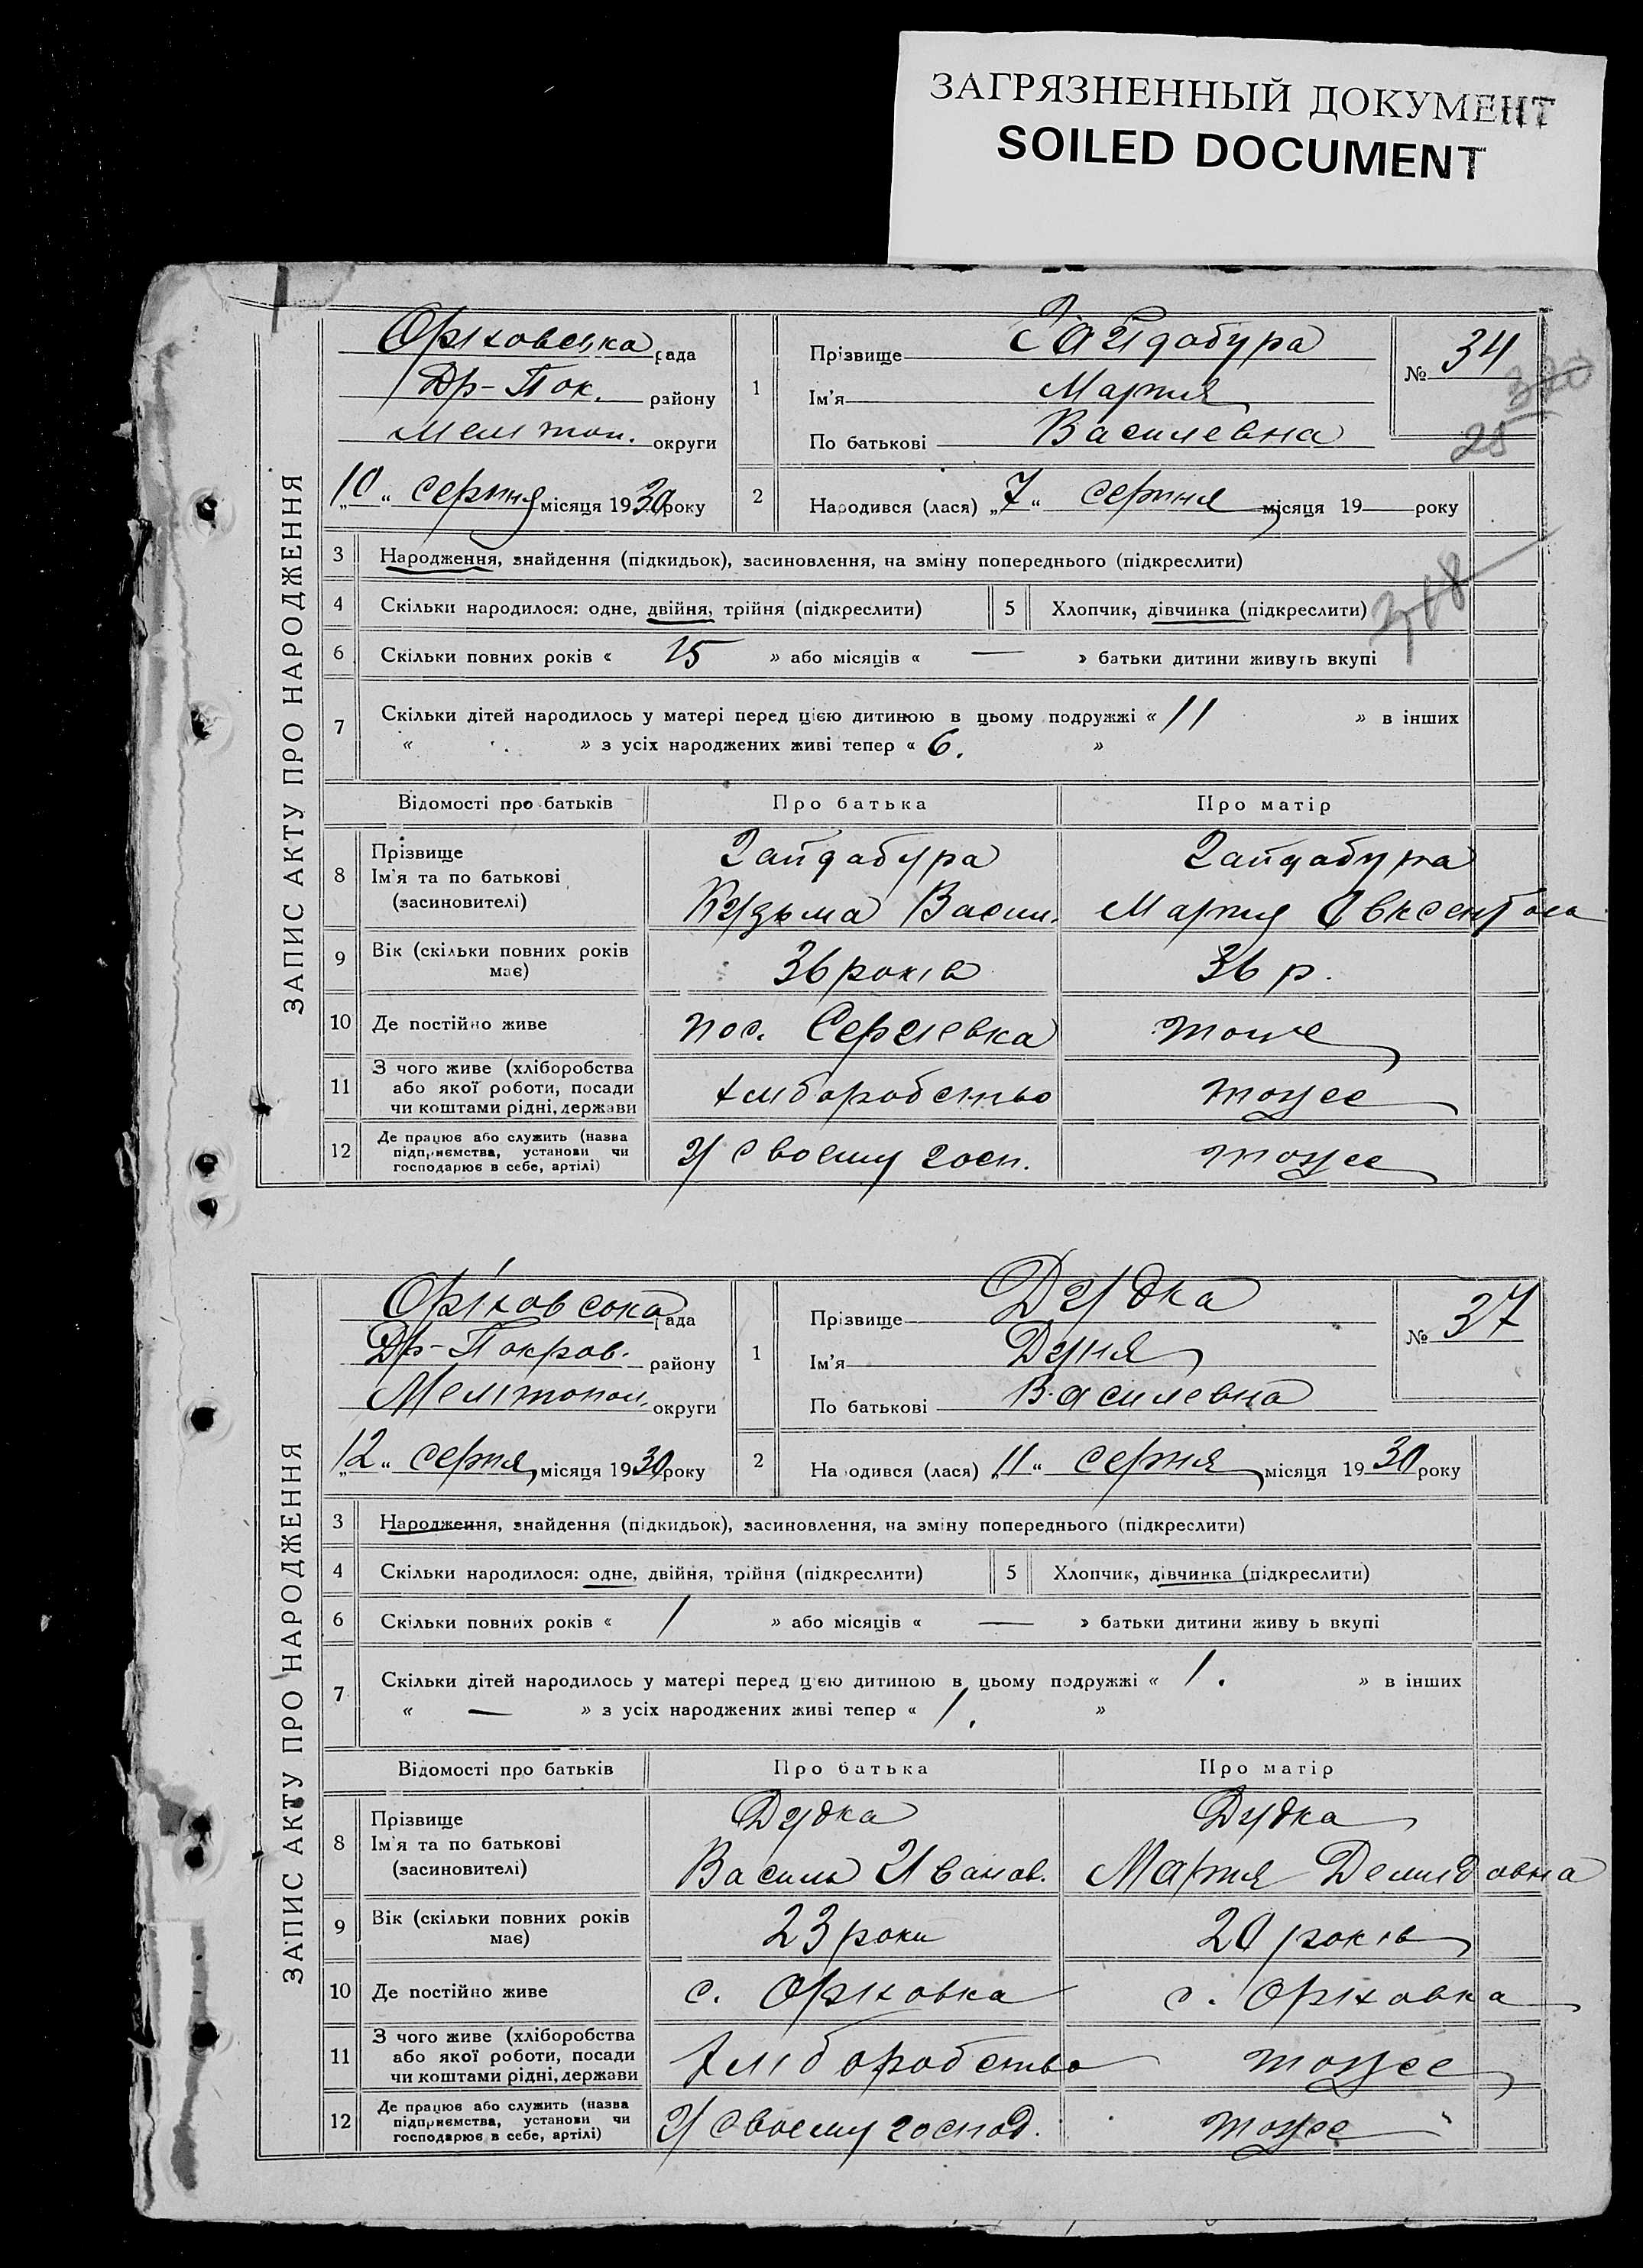 ЗАГРЯЗНЕННЫЙ ДОКУМЕНТ
SOILED DOCUMENT
ЗАПИС АКТУ ПРО НАРОДЖЕННЯ
Оріховська рада
Др-Пок. району
Мелітоп. округи
„10“ серпня місяця 1930 року
1
Прізвище Гайдабура
Ім'я Мария
По батькові Василевна
№ 34
320
25
2
Народився (лася) „7“ серпня місяця 19— року
3 Народження, знайдення (підкидьок), засиновлення, на зміну попереднього (підкреслити)
318
4 Скільки народилося: одне, двійня, трійня (підкреслити) 5 Хлопчик, дівчинка (підкреслити)
6 Скільки повних років « 15 » або місяців « — » батьки дитини живуть вкупі
7 Скільки дітей народилось у матері перед цією дитиною в цьому подружжі « 11 » в інших
« » з усіх народжених живі тепер « 6. »
Відомості про батьків Про батька Про матір
8 Прізвище
Ім'я та по батькові
(засиновителі)
Гайдабура Гайдабура
Кузьма Васил. Мария
9 Вік (скільки повних років
має)
36 років 36 р.
10 Де постійно живе пос. Сергіевка тоже
11 З чого живе (хліборобства
або якої роботи, посади
чи коштами рідні, держави
хліборобство тоже
12 Де працює або служить (назва
підприємства, установи чи
господарює в себе, артілі)
У своему госп. тоже
ЗАПИС АКТУ ПРО НАРОДЖЕННЯ
Оріховська рада
Др-Покров. району
Мелітопол. округи
„12“ серпня місяця 1930 року
1
Прізвище Дудка
Ім'я Дуня
По батькові Василевна
№ 37
2
Народився (лася) „11“ серпня місяця 1930 року
3 Народження, знайдення (підкидьок), засиновлення, на зміну попереднього (підкреслити)
4 Скільки народилося: одне, двійня, трійня (підкреслити) 5 Хлопчик, дівчинка (підкреслити)
6 Скільки повних років « 1 » або місяців « — » батьки дитини живу ь вкупі
7 Скільки дітей народилось у матері перед цією дитиною в цьому подружжі « 1. » в інших
« — » з усіх народжених живі тепер « 1. »
Відомості про батьків Про батька Про матір
8 Прізвище
Ім'я та по батькові
(засиновителі)
Дудка Дудка
Василь Иванов. Мария Демидовна
9 Вік (скільки повних років
має)
23 роки 20 років
10 Де постійно живе с. Оріховка с. Оріховка
11 З чого живе (хліборобства
або якої роботи, посади
чи коштами рідні, держави
хліборобство тоже
12 Де працює або служить (назва
підприємства, установи чи
господарює в себе, артілі)
У своему господ. тоже